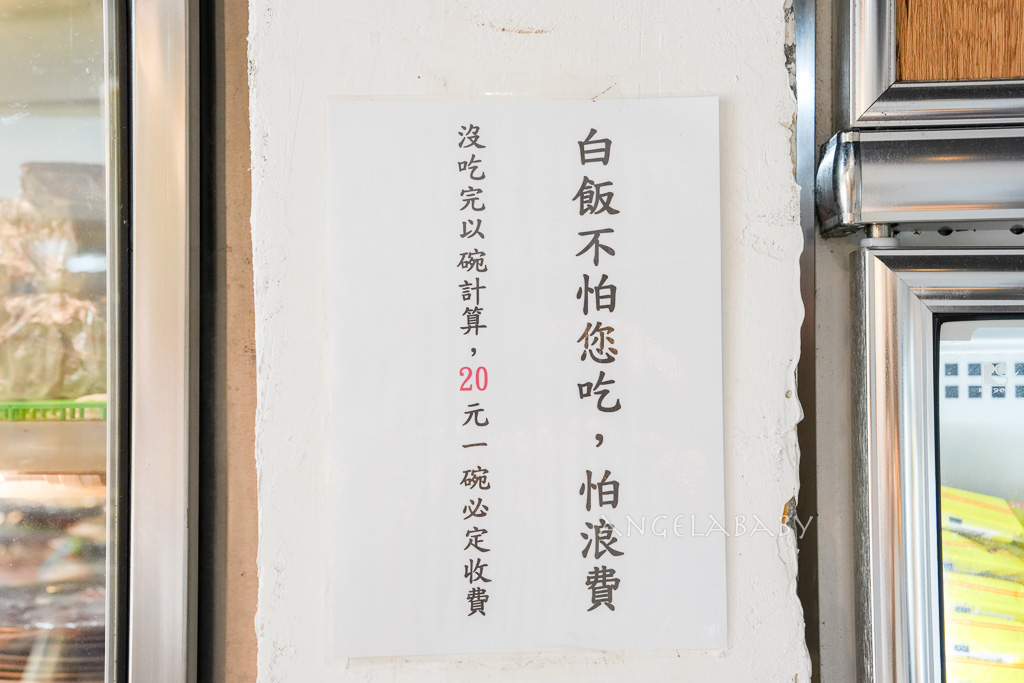 白飯不怕您吃，怕浪費
沒吃完以碗計算，20元一碗必定收費
ANGELABABY